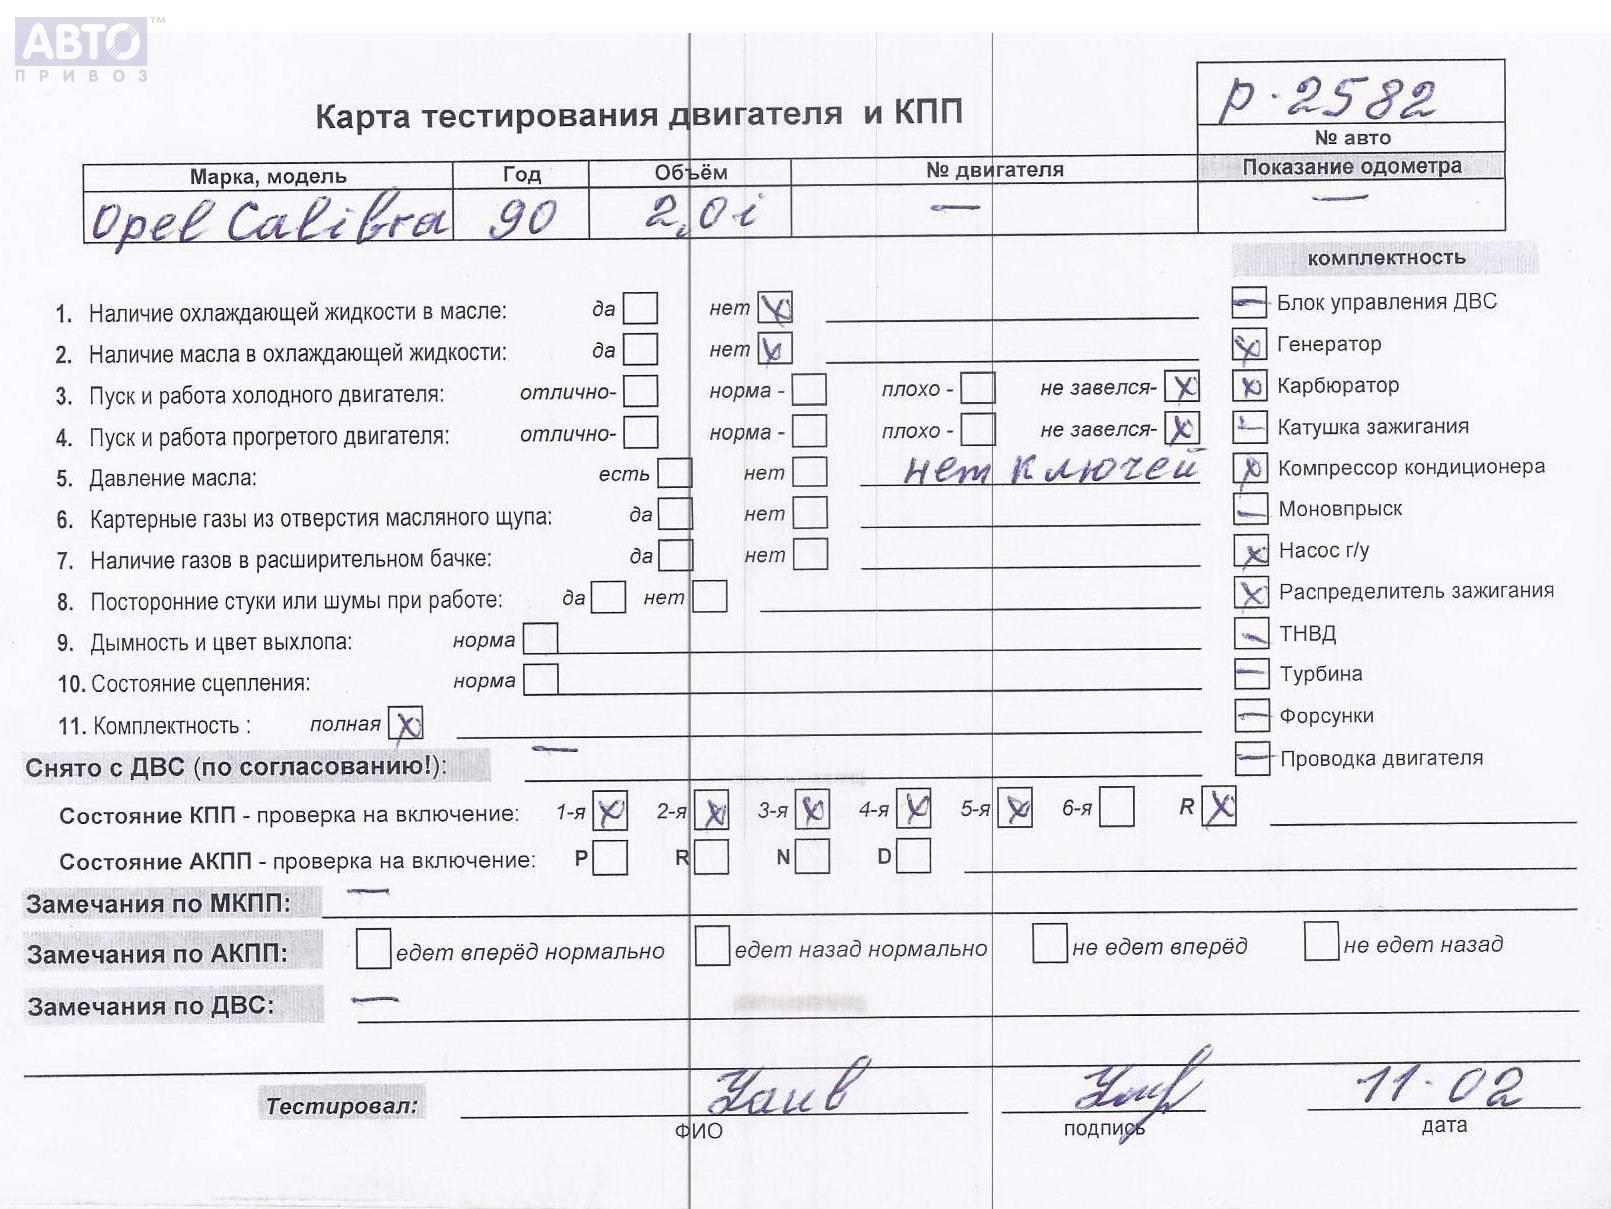 АВТО™
ПРИВОЗ
р·2582
Карта тестирования двигателя и КПП
№ авто
Марка, модель Год Объём № двигателя Показание одометра
Opel Calibra 90 2,0i — —
комплектность
1. Наличие охлаждающей жидкости в масле: да нет
Блок управления ДВС
2. Наличие масла в охлаждающей жидкости: да нет
Генератор
3. Пуск и работа холодного двигателя: отлично- норма - плохо - не завелся-
Карбюратор
4. Пуск и работа прогретого двигателя: отлично- норма - плохо - не завелся-
Катушка зажигания
5. Давление масла: есть нет нет ключей
Компрессор кондиционера
6. Картерные газы из отверстия масляного щупа: да нет
Моновпрыск
7. Наличие газов в расширительном бачке: да нет
Насос г/у
8. Посторонние стуки или шумы при работе: да нет
Распределитель зажигания
9. Дымность и цвет выхлопа: норма
ТНВД
10. Состояние сцепления: норма
Турбина
11. Комплектность : полная
Форсунки
Снято с ДВС (по согласованию!): —
Проводка двигателя
Состояние КПП - проверка на включение: 1-я 2-я 3-я 4-я 5-я 6-я R
Состояние АКПП - проверка на включение: P R N D
Замечания по МКПП: —
Замечания по АКПП: едет вперёд нормально едет назад нормально не едет вперёд не едет назад
Замечания по ДВС: —
Тестировал: 11·02
ФИО подпись дата